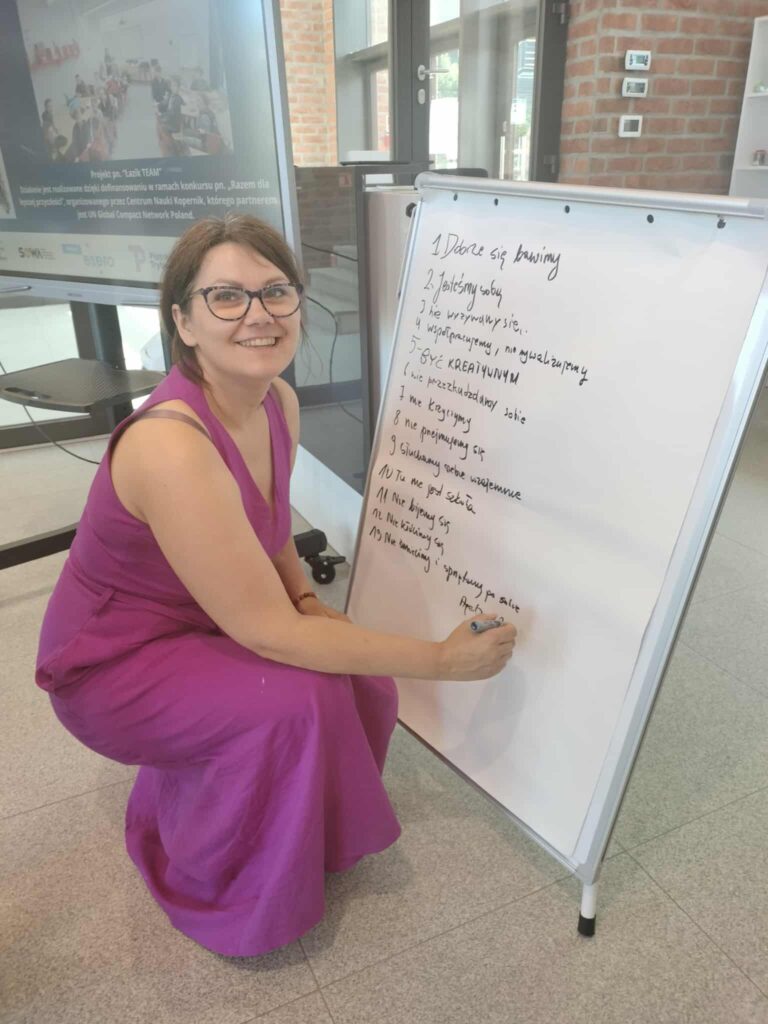 Projekt pn. "Łazik TEAM"
Działanie jest realizowane dzięki dofinansowaniu w ramach konkursu pn. „Razem dla
lepszej przyszłości", organizowanego przez Centrum Nauki Kopernik, którego partnerem
jest UN Global Compact Network Poland.
SOWA
1 Dobrze się bawimy
2. Jesteśmy sobą
3 nie wyzywamy się..
4 współpracujemy, nie rywalizujemy
5 - BYĆ KREATYWNYM
6 nie przeszkadzamy sobie
7 nie krzyczymy
8 nie przejmujemy się
9 słuchamy siebie wzajemnie
10 Tu nie jest szkoła
11 Nie bijemy się
12 Nie kłócimy się
13 Nie śmiecimy i sprzątamy po sobie